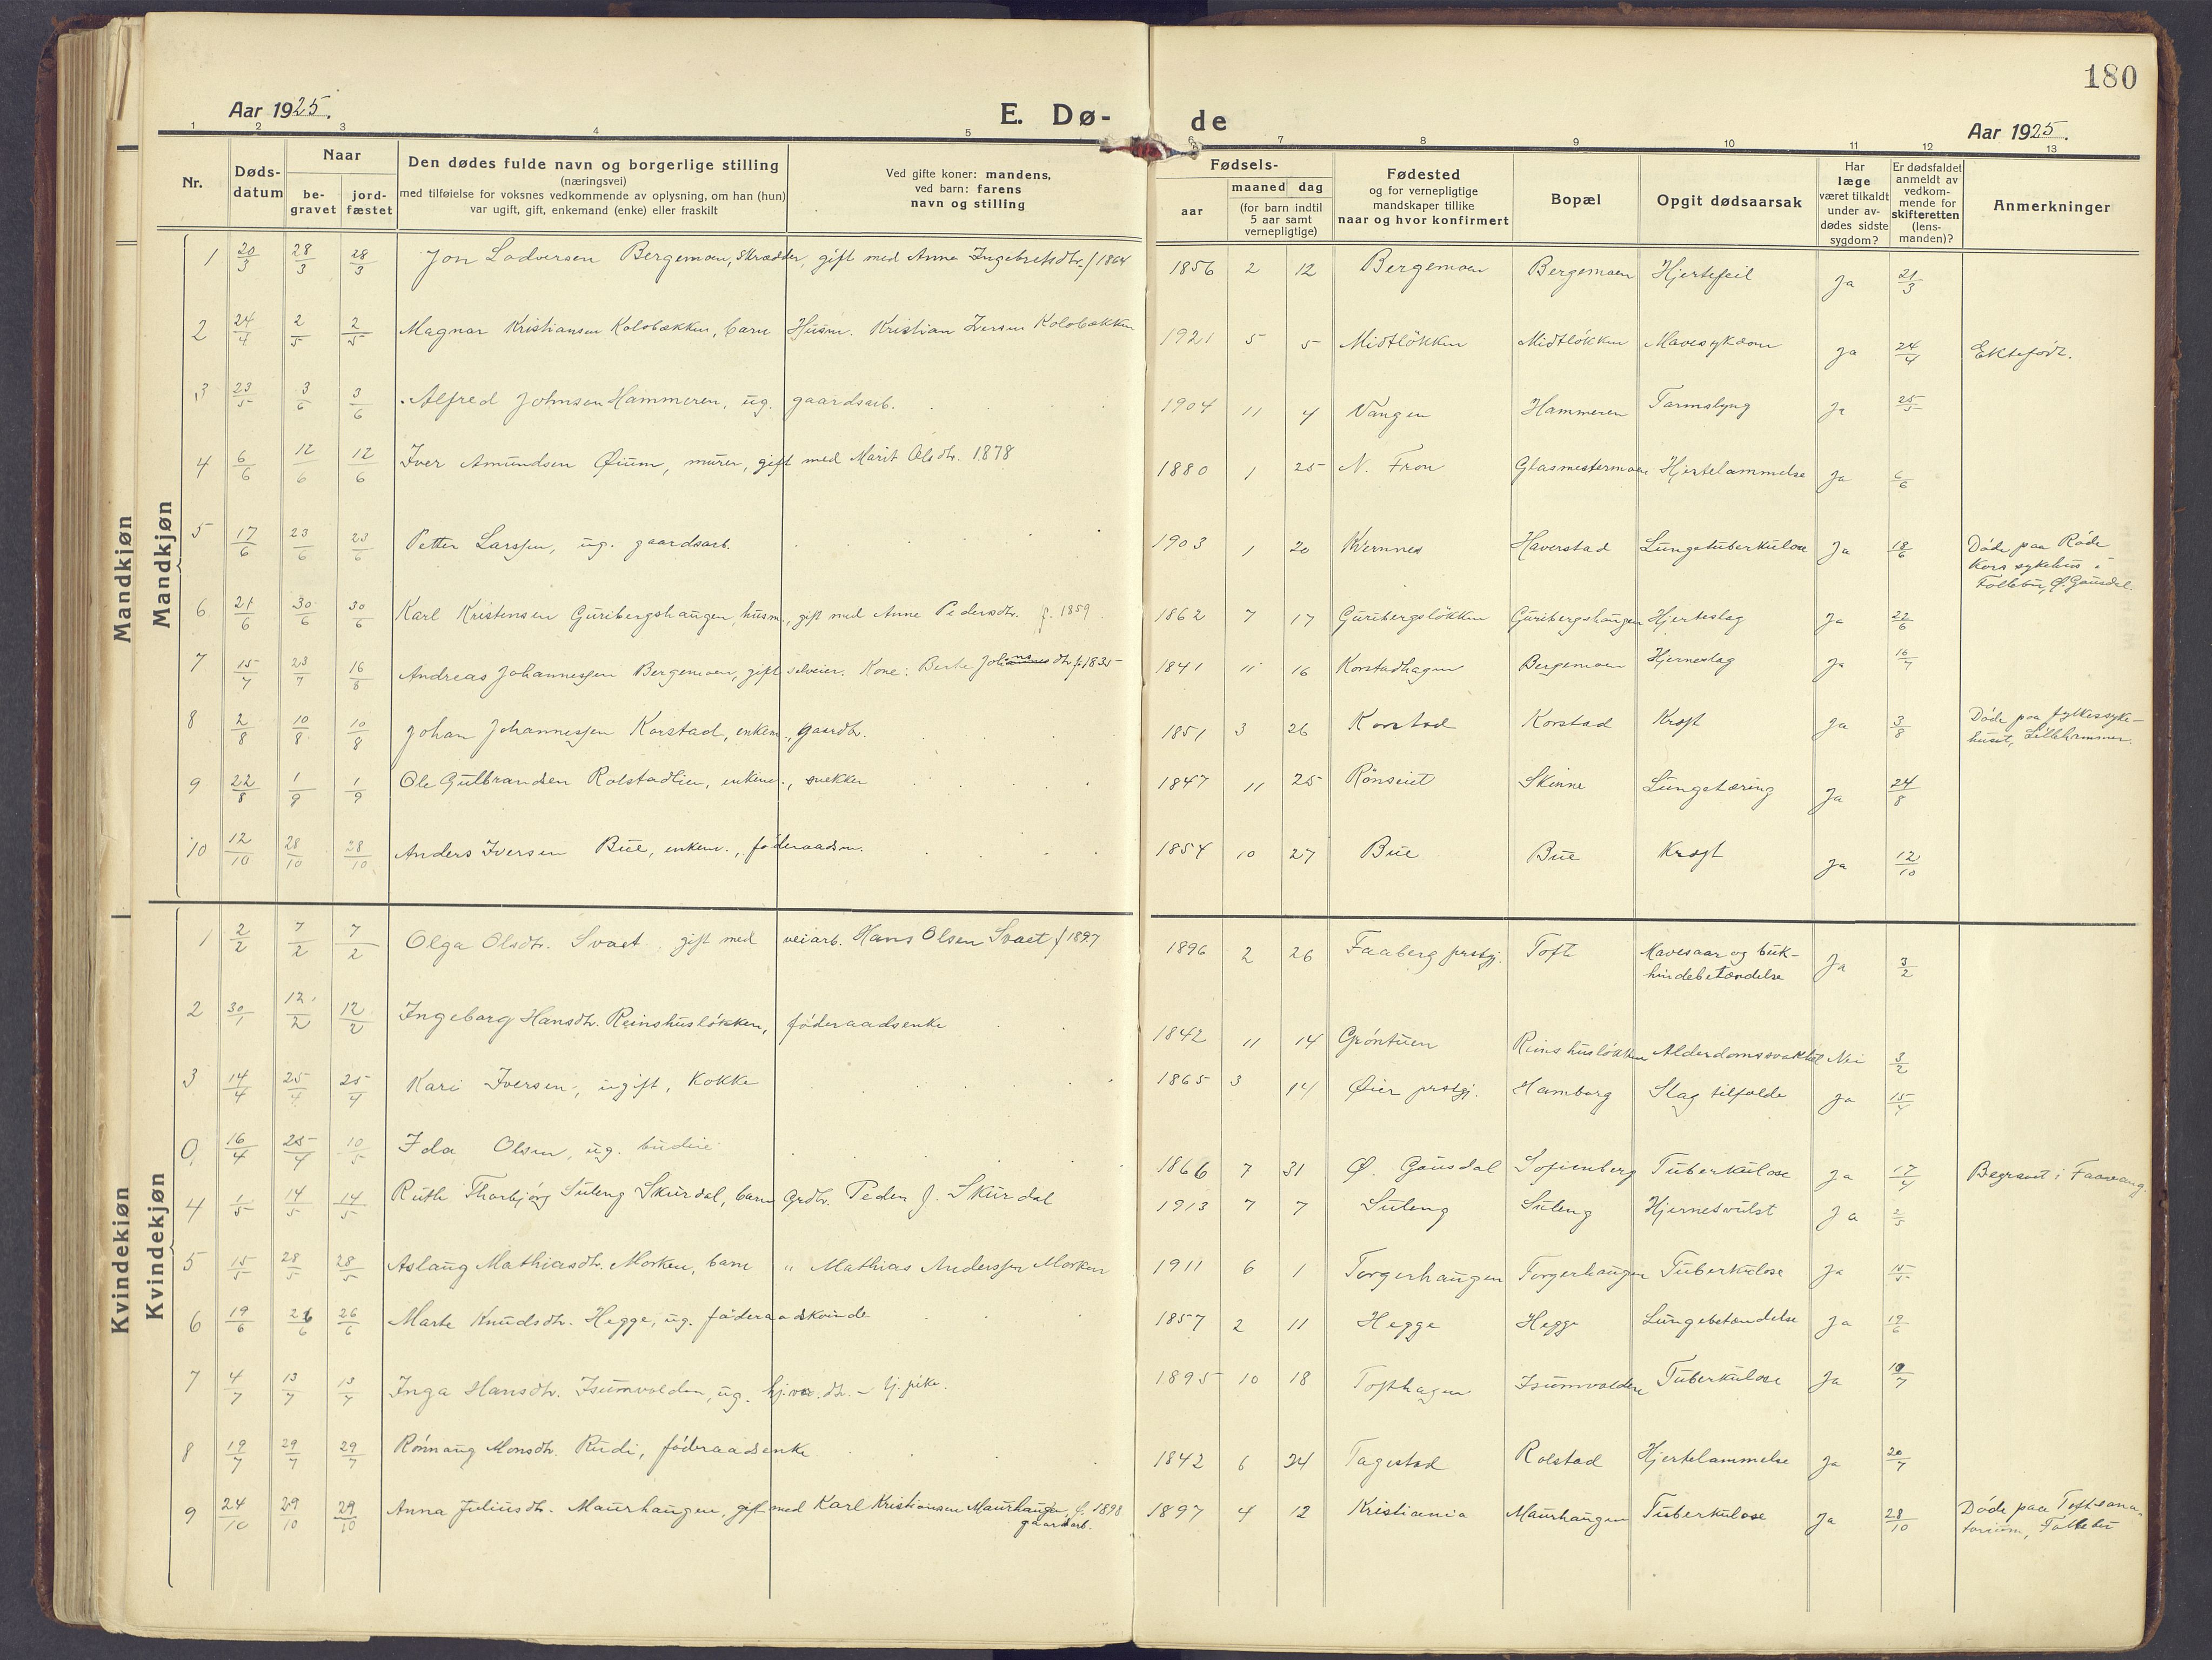 180
Aar 1925.
E. Dø-
de
Aar 1925.
1 2 3 4 5 6 7 8 9 10 11 12 13
Nr.
Døds-
datum
Naar
be-
gravet
jord-
fæstet
Den dødes fulde navn og borgerlige stilling
(næringsvei)
med tilføielse for voksnes vedkommende av oplysning, om han (hun)
var ugift, gift, enkemand (enke) eller fraskilt
Ved gifte koner: mandens,
ved barn: farens
navn og stilling
Fødsels-
aar
maaned dag
(for barn indtil
5 aar samt
vernepligtige)
Fødested
og for vernepligtige
mandskaper tillike
naar og hvor konfirmert
Bopæl
Opgit dødsaarsak
Har
læge
været tilkaldt
under av-
dødes sidste
sygdom?
Er dødsfaldet
anmeldt av
vedkom-
mende for
skifteretten
(lens-
manden)?
Anmerkninger
Mandkjøn
Mandkjøn
1 20/3 28/3 28/3 Jon Lodversen Bergemoen, skrædder, gift med Anna Ingebretsdtr. f 1864 1856 2 12 Bergemoen Bergemoen Hjertefeil Ja 21/3
2 24/4 2/5 2/5 Magnar Kristiansen Kolobækken, barn Husm. Kristian Iversen Kolobækken 1921 5 5 Midtløkken Midtløkken Mavesykdom Ja 24/4 Ektefødt.
3 23/5 3/6 3/6 Alfred Johnsen Hammeren, ug. gaardsarb. 1904 11 4 Vangen Hammeren Tarmslyng Ja 25/5
4 6/6 12/6 12/6 Iver Amundsen Øium, murer, gift med Marit Olsdtr. 1878 1880 1 25 N. Fron Glasmestermoen Hjertelammelse Ja 6/6
5 17/6 23/6 23/6 Petter Larssen, ug. gaardsarb. 1903 1 20 Kvernnes Haverstad Lungetuberkulose Ja 18/6 Døde paa Røde
Kors sykehus i
Follebu, Ø. Gausdal.
6 21/6 30/6 30/6 Karl Kristensen Guribergshaugen, husm., gift med Anne Pedersdtr. f. 1859. 1862 7 17 Guribergsløkken Guribergshaugen Hjerteslag Ja 22/6
7 15/7 23/7 16/8 Andreas Johannessen Bergemoen, gift selveier. Kone: Berte Johansdtr f. 1835 1841 11 16 Korstadhagen Bergemoen Hjerneslag Ja 16/7
8 2/8 10/8 10/8 Johan Johannessen Korstad, enkem., gaardbr. 1851 3 26 Korstad Korstad Kræft Ja 3/8 Døde paa fylkessyke-
huset, Lillehammer.
9 22/8 1/9 1/9 Ole Gulbrandsen Rolstadlien, enkem., snekker 1847 11 25 Rønseiet Skinne Lungetæring Ja 24/8
10 12/10 28/10 28/10 Anders Iversen Bue, enkem., føderaadsm. 1854 10 27 Bue Bue Kræft Ja 12/10
Kvindekjøn
Kvindekjøn
1 2/2 7/2 7/2 Olga Olsdtr. Svaet gift med veiarb. Hans Olsen Svaet f 1897 1896 2 26 Faaberg prstgj. Tofte Mavesaar og buk-
hindebetændelse Ja 3/2
2 30/1 12/2 12/2 Ingeborg Hansdtr. Reinshusløkken, føderaadsenke 1842 11 14 Grøntuen Reinshusløkken Alderdomssvakhet Nei 3/2
3 14/4 25/4 25/4 Kari Iversen, ugift, kokke 1865 3 14 Øier prstgj. Hamborg Slag tilfælde Ja 15/4
0. 16/4 25/4 10/5 Ida Olsen, ug. budeie 1866 7 31 Ø. Gausdal Sofienberg Tuberkulose Ja 17/4 Begravet i Faavang.
4 1/5 14/5 14/5 Ruth Thorbjørg Suleng Skurdal, barn Grdbr. Peder J. Skurdal 1913 7 7 Suleng Suleng Hjernesvulst Ja 2/5
5 15/5 28/5 28/5 Aslaug Mathiasdtr. Morken, barn " Mathias Anderssen Morken 1911 6 1 Torgerhaugen Torgerhaugen Tuberkulose Ja 15/5
6 19/6 26/6 26/6 Marte Knudsdtr. Hegge, ug. føderaadskvinde 1857 2 11 Hegge Hegge Lungebetændelse Ja 19/6
7 4/7 13/7 13/7 Inga Hansdtr. Isumvolden, ug. dtr. – tj. pike. 1895 10 18 Tofthagen Isumvolden Tuberkulose Ja 10/7
8 19/7 29/7 29/7 Rønnaug Monsdtr. Rudi, føderaadsenke 1842 6 24 Tagestad Rolstad Hjertelammelse Ja 20/7
9 24/10 29/10 29/10 Anna Juliusdtr. Maurhaugen, gift med Karl Kristiansen Maurhaugen, f. 1898
gaardarb. 1897 4 12 Kristiania Maurhaugen Tuberkulose Ja 28/10 Døde paa Toftsana-
torium, Follebu